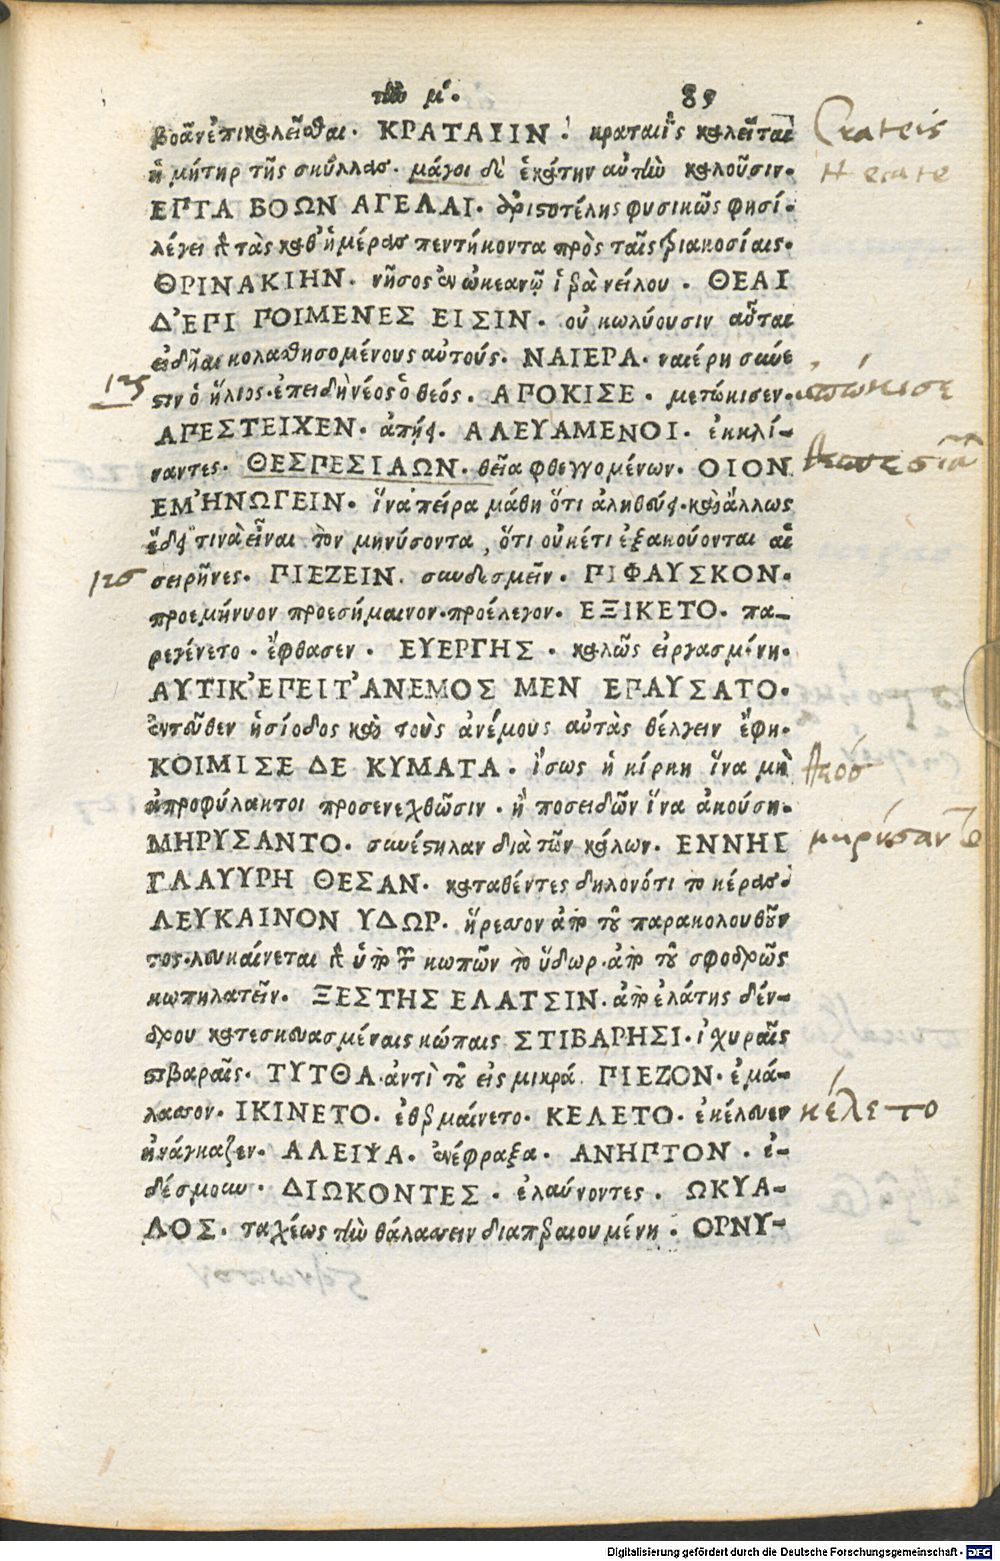 τὴν μ. 89
βοᾶν ἐπικαλεῖσθαι. ΚΡΑΤΑΙΙΝ. κραταιῒς καλεῖται
ἡ μήτηρ τῆς σκύλλας. μάγοι δὲ ἑκάτην αὐτὴν καλοῦσιν.
ΕΠΤΑ ΒΟΩΝ ΑΓΕΛΑΙ. ἀριστοτέλης φυσικῶς φησί.
λέγει δὲ τὰς καθ' ἡμέρας πεντήκοντα πρὸς ταῖς τριακοσίαις.
ΘΡΙΝΑΚΙΗΝ. νῆσος ἐν ὠκεανῷ νείλου. ΘΕΑΙ
Δ'ΕΠΙ ΠΟΙΜΕΝΕΣ ΕΙΣΙΝ. οὐ κωλύουσιν αὗται
κολασθησομένους αὐτούς. ΝΑΙΕΡΑ. ναιέρη
στιν ὁ ἥλιος. ἐπειδὴ νέος ὁ θεός. ΑΠΟΚΙΣΕ. μετώκισεν.
ΑΠΕΣΤΕΙΧΕΝ. ἀπῄει. ΑΛΕΥΑΜΕΝΟΙ. ἐκκλί-
ναντες. ΘΕΣΠΕΣΙΑΩΝ. θεῖα φθεγγομένων. ΟΙΟΝ
ΕΜ'ΗΝΩΓΕΙΝ. ἵνα πείρα μάθῃ ὅτι ἀληθεύει. καὶ ἄλλως
ἔδει τινὰ εἶναι τὸν μηνύσοντα, ὅτι οὐκέτι ἐξακούονται αἱ
σειρῆνες. ΠΙΕΖΕΙΝ. συνδεσμεῖν. ΠΙΦΑΥΣΚΟΝ.
προεμήνυον προεσήμαινον. προέλεγον. ΕΞΙΚΕΤΟ. πα-
ρεγένετο. ἔφθασεν. ΕΥΕΡΓΗΣ. καλῶς εἰργασμένη.
ΑΥΤΙΚ'ΕΠΕΙΤ'ΑΝΕΜΟΣ ΜΕΝ ΕΠΑΥΣΑΤΟ.
ἐντεῦθεν ἡσίοδος καὶ τοὺς ἀνέμους αὐτὰς θέλγειν ἔφη.
ΚΟΙΜΙΣΕ ΔΕ ΚΥΜΑΤΑ. ἴσως ἡ κίρκη ἵνα μὴ
ἀπροφύλακτοι προσενεχθῶσιν. ἢ ποσειδῶν ἵνα ἀκούσῃ.
ΜΗΡΥΣΑΝΤΟ. συνέστηλαν διὰ τῶν κάλων. ΕΝΝΗΙ
ΓΛΑΥΥΡΗ ΘΕΣΑΝ. καταθέντες δηλονότι τὸ κέρας.
ΛΕΥΚΑΙΝΟΝ ΥΔΩΡ. ἤρεσσον ἀπὸ τοῦ παρακολουθοῦν
τος. λευκαίνεται δὲ ὑπὸ τῶν κωπῶν τὸ ὕδωρ. ἀπὸ τοῦ σφοδρῶς
κωπηλατεῖν. ΞΕΣΤΗΣ ΕΛΑΤΣΙΝ. ἀπὸ ἐλάτης δέν-
δρου κατεσκευασμέναις κώπαις ΣΤΙΒΑΡΗΣΙ. ἰχυραῖς
στιβαραῖς. ΤΥΤΘΑ. ἀντὶ τοῦ εἰς μικρά. ΠΙΕΖΟΝ. ἐμά-
λασσον. ΙΚΙΝΕΤΟ. ἐθερμαίνετο. ΚΕΛΕΤΟ. ἐκέλευεν
ἠνάγκαζεν. ΑΛΕΙΨΑ. ἐνέφραξα. ΑΝΗΠΤΟΝ. ἐ-
δέσμουν. ΔΙΩΚΟΝΤΕΣ. ἐλαύνοντες. ΩΚΥΑ-
ΛΟΣ. ταχέως τὴν θάλασσαν διαπεραιουμένη. ΟΡΝΥ-
Crateis
Hecate
125
ἀπώκισε
126
θεός
μηρύσαντο
κέλετο
Digitalisierung gefördert durch die Deutsche Forschungsgemeinschaft - DFG